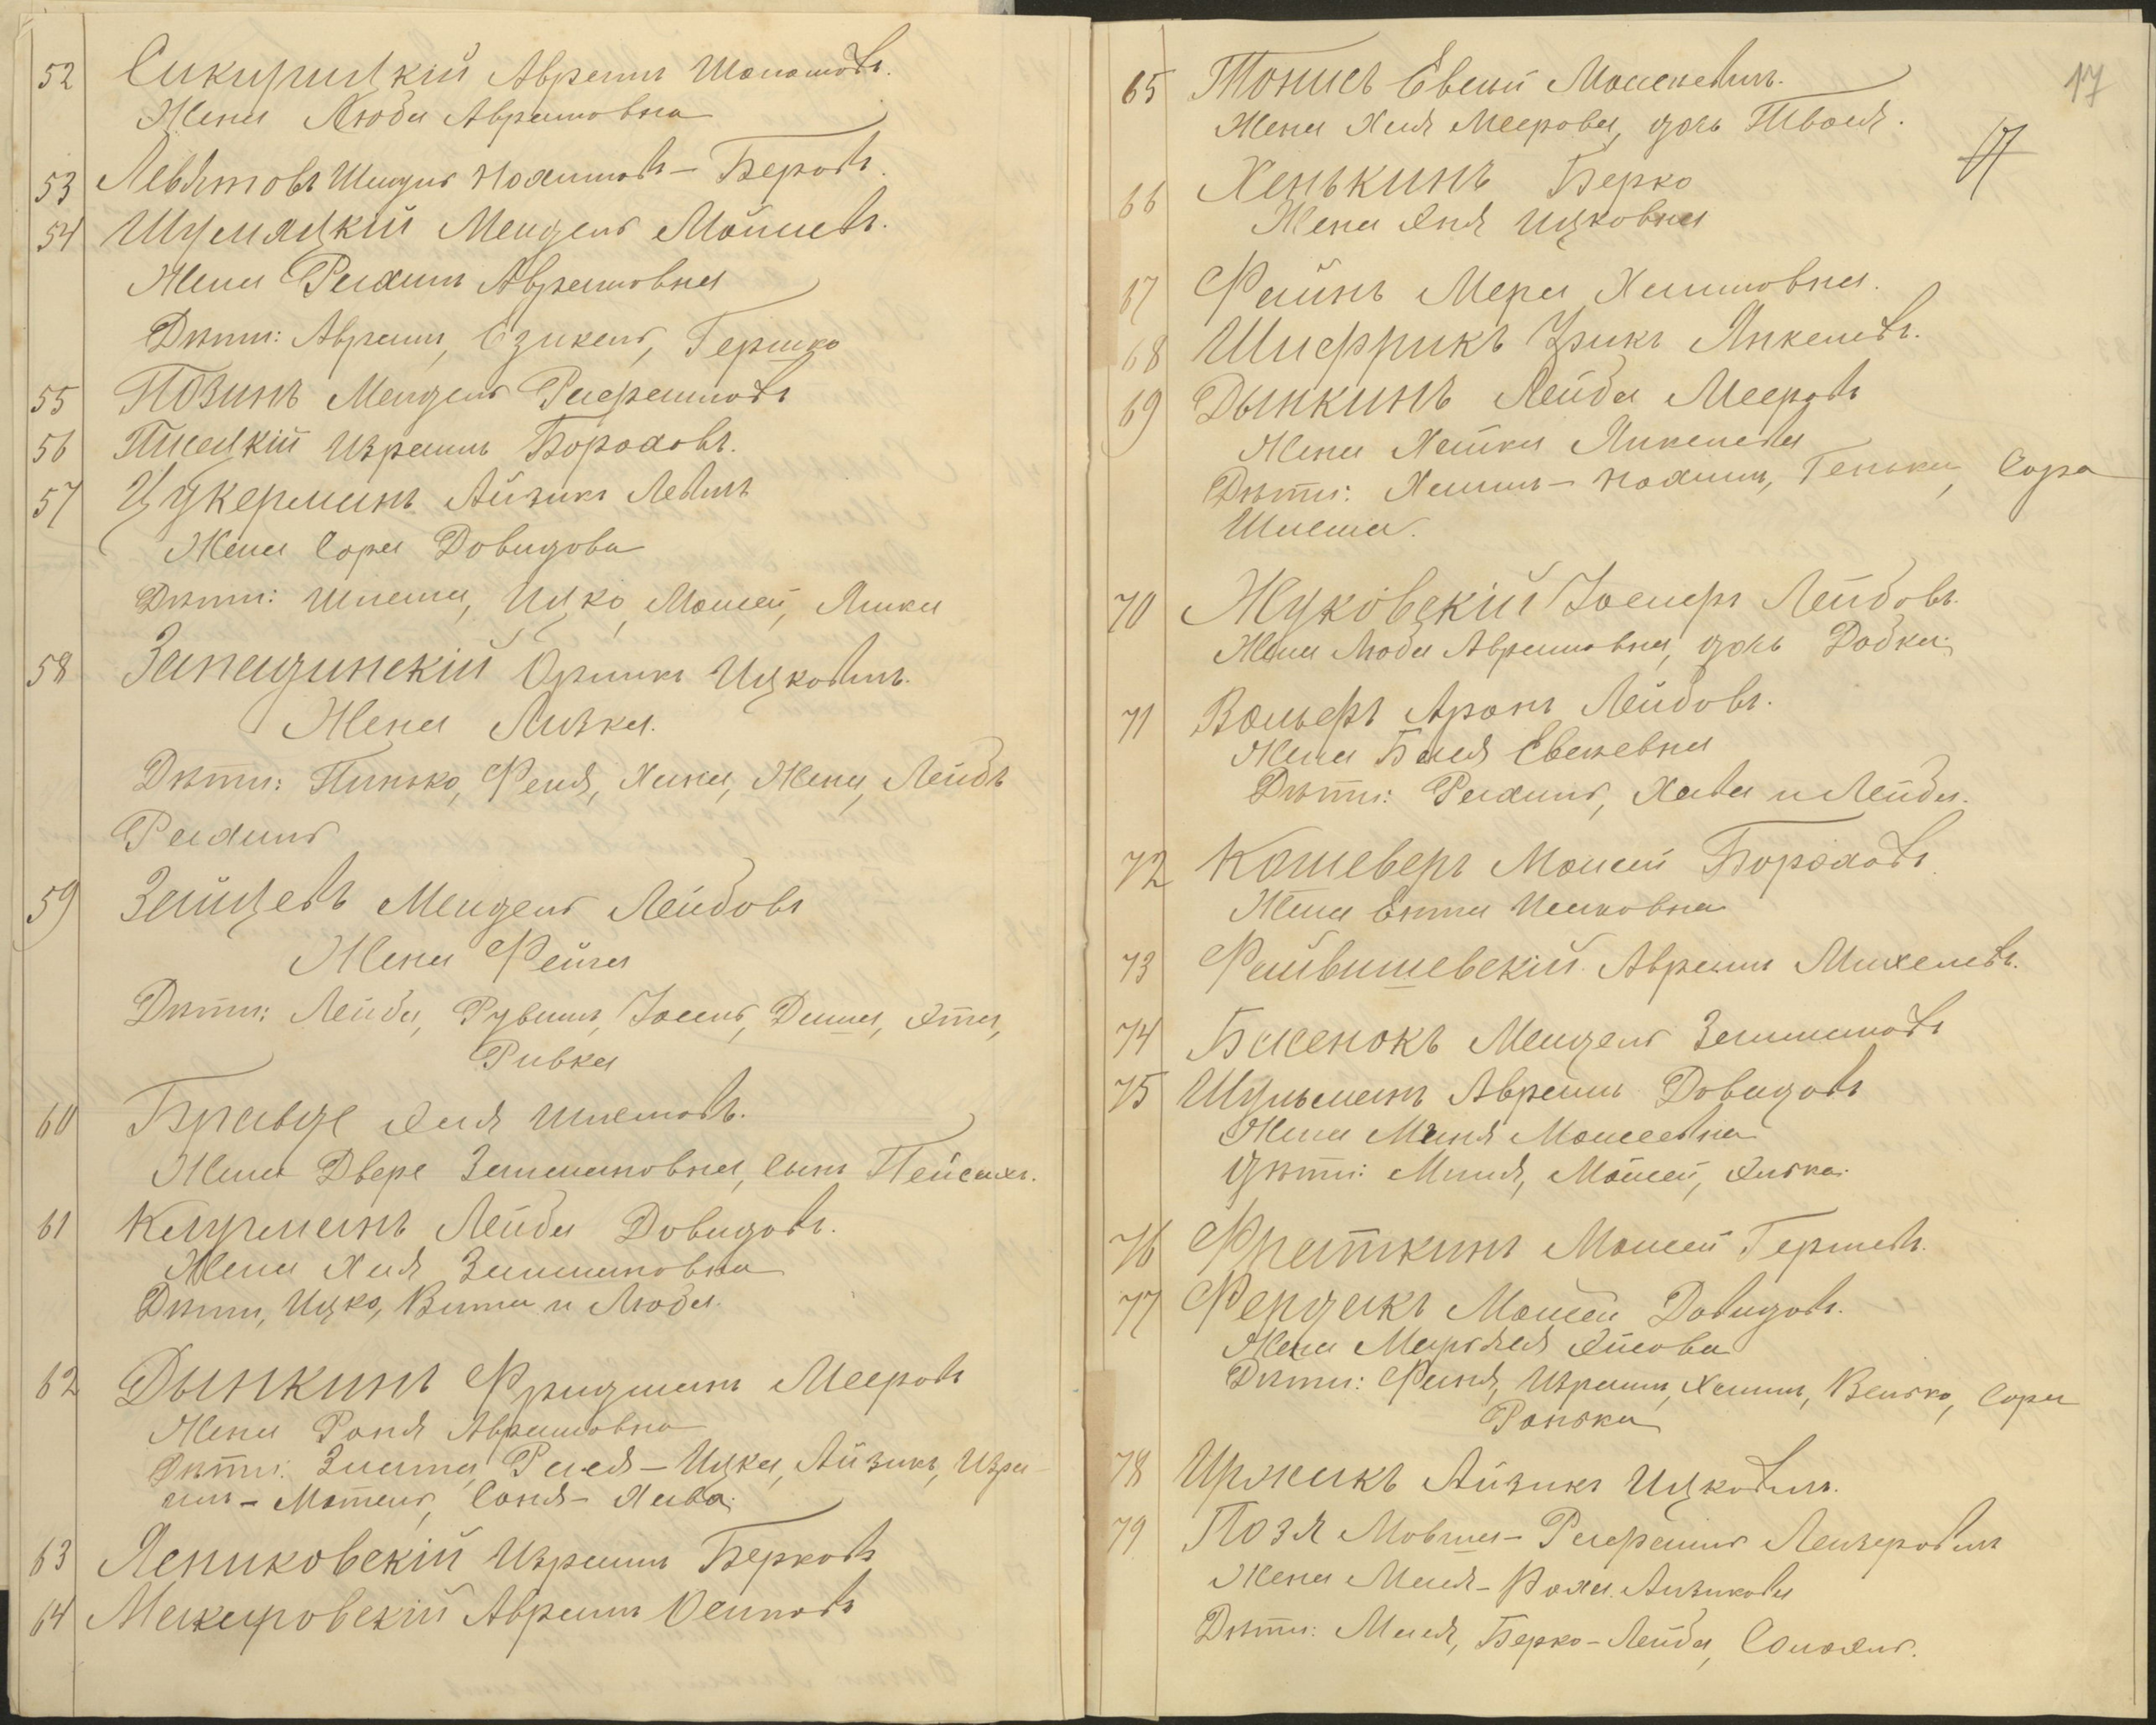 52 Сикирицкій Аврамъ Шоломовъ.
Жена Люба Аврамовна
53 Левятовъ Шендль Нохимовъ - Берковъ.
54 Шумяцкій Мендель Мойшевъ.
Жена Рахиль Аврамовна
Дѣти: Аврамъ, Езикель, Гершко
55 Позинъ Мендель Рафаиловъ
56 Писецкій Израиль Бороховъ.
57 Цукерманъ Айзикъ Левинъ
Жена Сора Довидова
Дѣти: Шлема, Ицко, Мошей, Янкел
58 Западинскій Оршикъ Ицковичъ.
Жена Лизка.
Дѣти: Пинько, Феня, Хана, Жена, Лейбъ
Рахиль
59 Зайцевъ Мендель Лейбовъ
Жена Фейга
Дѣти: Лейба, Рувимъ, Іосель, Дина, Этта,
Ривка
60 Бравде Хая Шлемовъ.
Жена Двере Залмановна, сынъ Пейсахъ.
61 Каурманъ Лейба Довидовъ.
Жена Хая Залмановна
Дѣти, Ицко, Вита и Люба.
62 Дынкинъ Фридманъ Мееровъ
Жена Роня Аврамовна
Дѣти: Злата, Рася - Ицка, Айзикъ, Изра-
иль - Мотель, Соня - Хава.
63 Лепиковскій Израиль Берковъ
64 Межировскій Аврамъ Осиповъ
17
65 Тонисъ Евсей Мошеневичъ.
Жена Хая Меерова, дочь Твося.
17
66 Хенькинъ Берко
Жена Хня Ицковна
67 Файнъ Мера Хаимовна.
68 Шифрикъ Зрикъ Янкелевъ.
69 Дынкинъ Лейба Мееровъ
Жена Хейка Янкелева
Дѣти: Хаимъ - Нохимъ, Генька, Сора
Шлема.
70 Жуковскій Іосифъ Лейбовъ.
Жена Люба Аврамовна, дочь Добка.
71 Вольфъ Аронъ Лейбовъ.
Жена Бася Евсеевна
Дѣти: Рахиль, Хава и Лейба.
72 Кошеверъ Мошей Бороховъ.
Жена Ента Исаковна
73 Файвишевскій Аврамъ Михелевъ.
74 Басенокъ Мендель Залмановъ
75 Шульманъ Аврамъ Довидовъ
Жена Маня Мошеевна
Дѣти: Миня, Мошей, Хиська.
76 Фраткинъ Мошей Гершевъ.
77 Фердикъ Мошей Довидовъ.
Жена Марьяся Хаимова
Дѣти: Фаня, Израиль, Хаимъ, Велько, Сора
Ронька
78 Иржикъ Айзикъ Ицковичъ.
79 Позя Мовша - Рафаилъ Лейзеровичъ
Жена Мася - Роха Айзикова
Дѣти: Мася, Берко - Лейба, Соломъ.